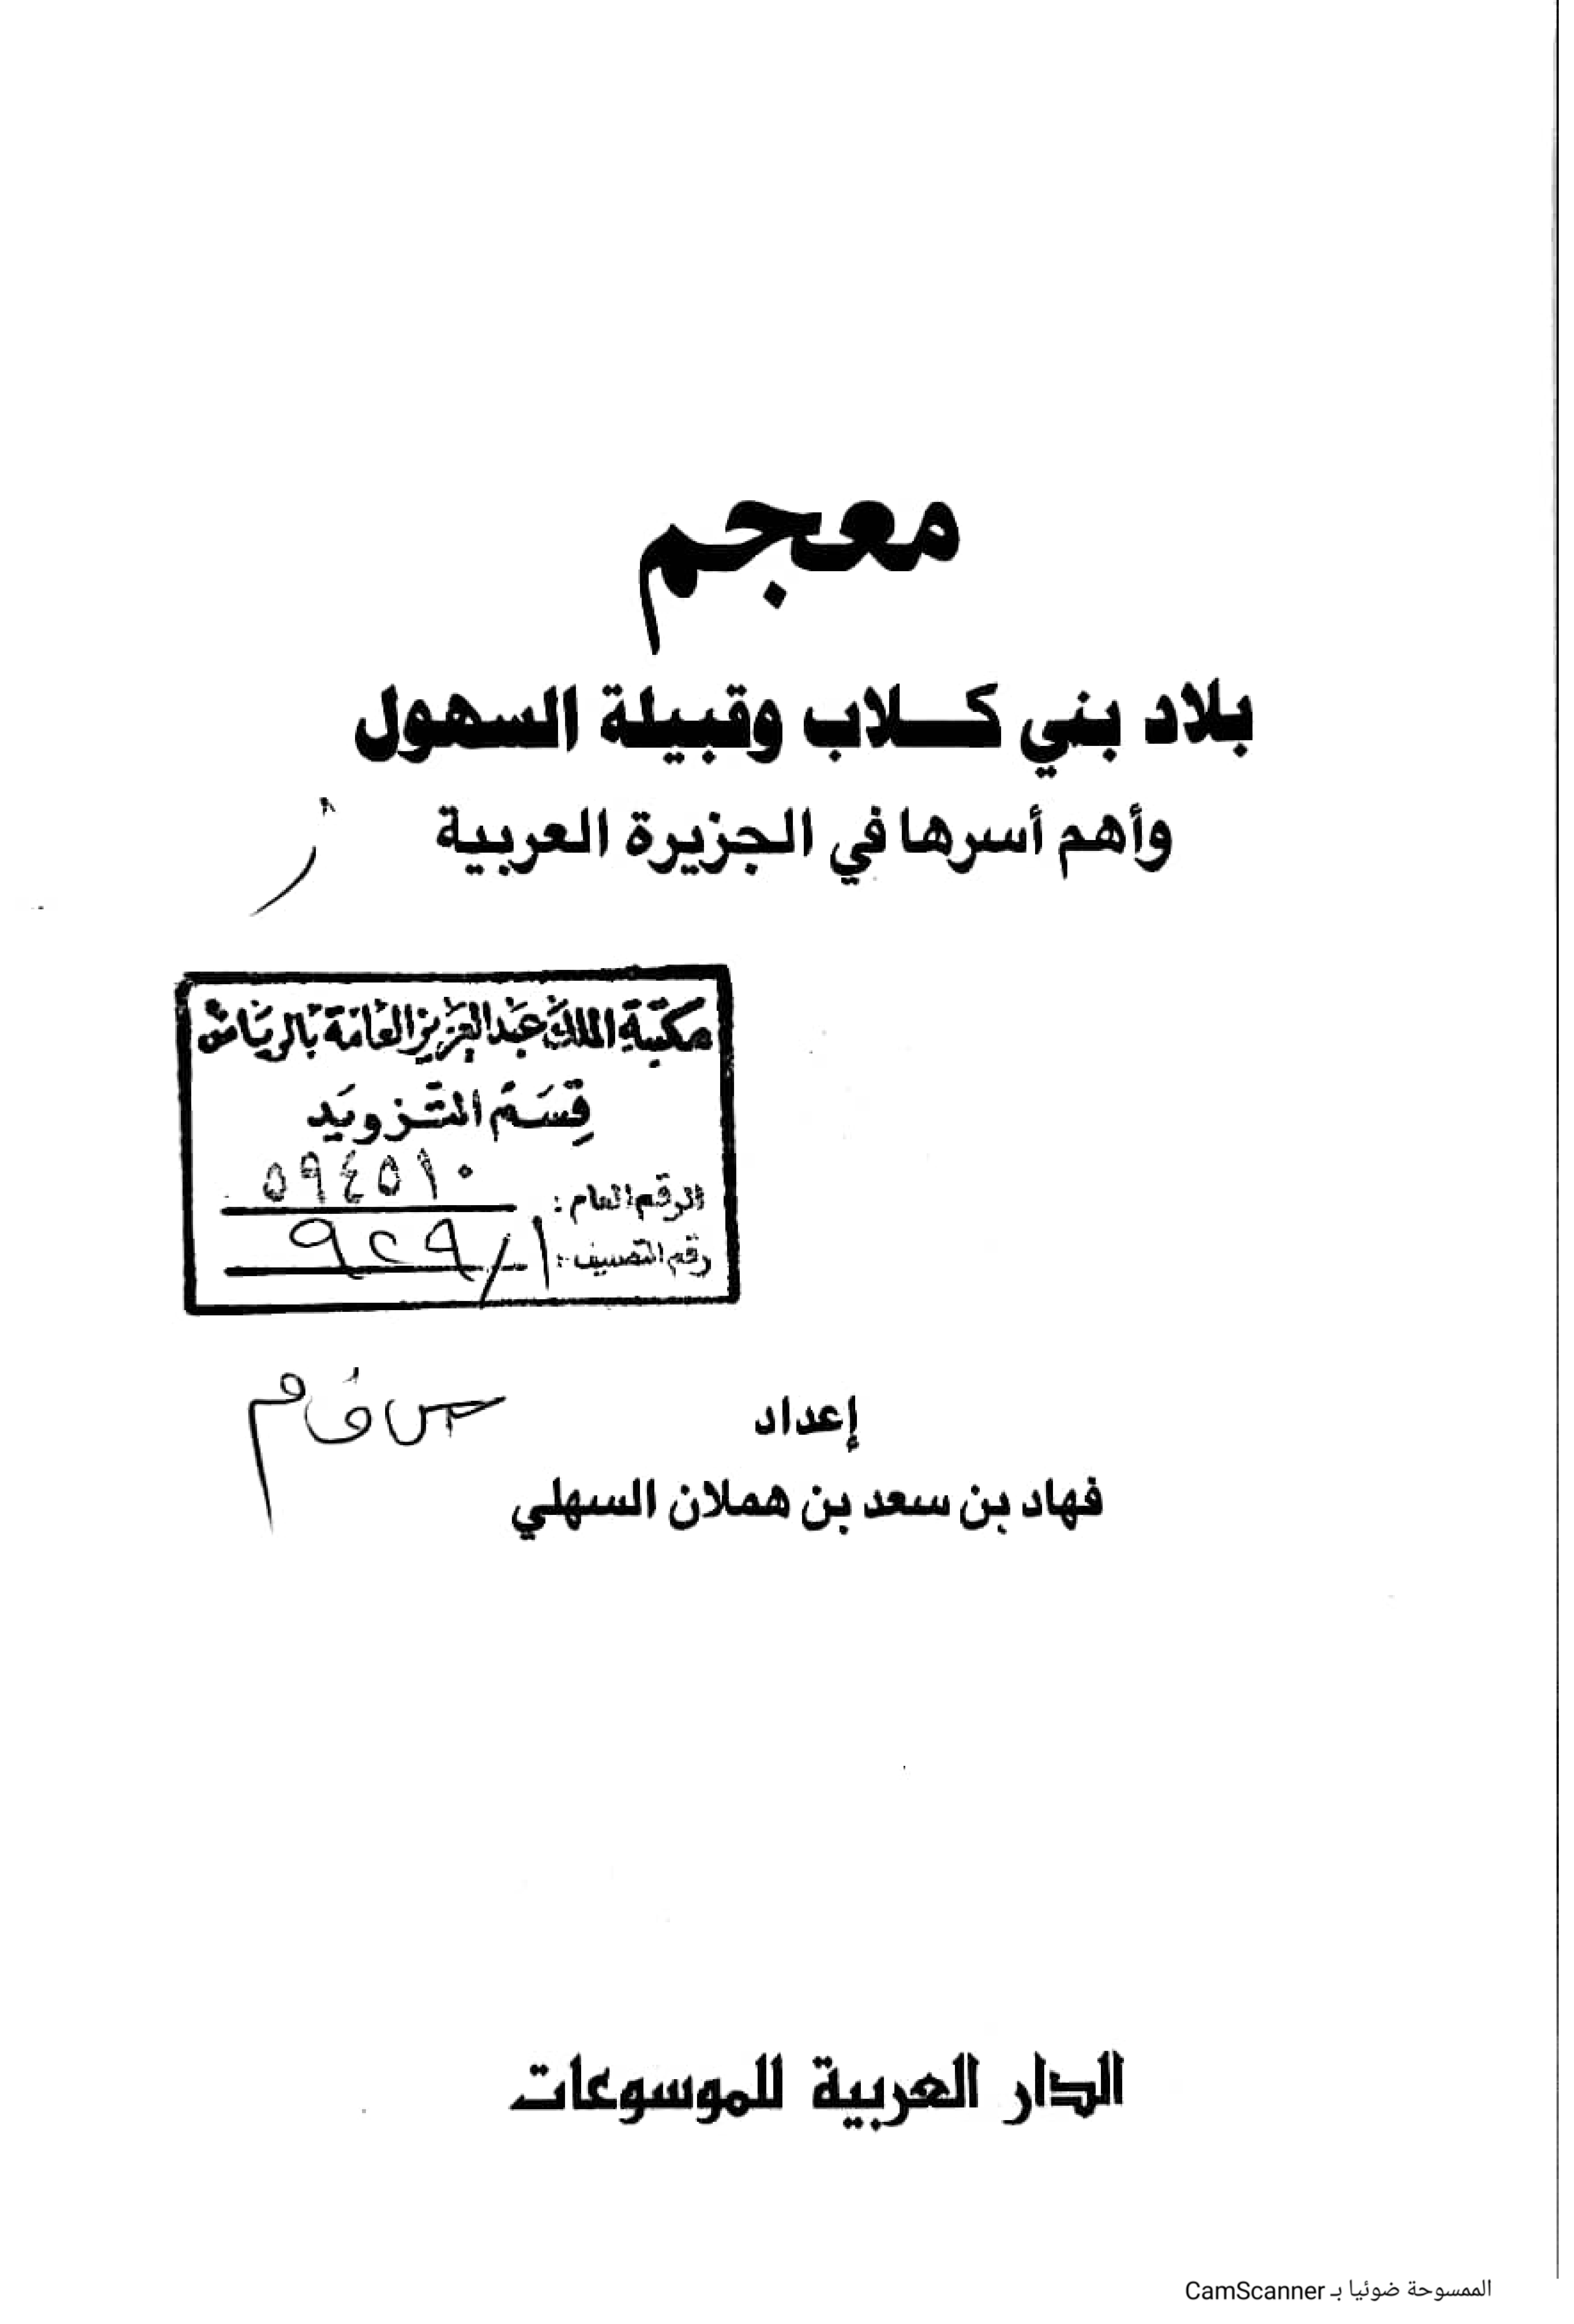 معجم
بلاد بني كلاب وقبيلة السهول
وأهم أسرها في الجزيرة العربية
مكتبة الملك عبدالعزيز العامة بالرياض
قسم التزويد
الرقم العام: ٥٩٤٥١٠
رقم التصنيف: ٩٢٩/١
إعداد
فهاد بن سعد بن هملان السهلي
الدار العربية للموسوعات
الممسوحة ضوئيا بـ CamScanner